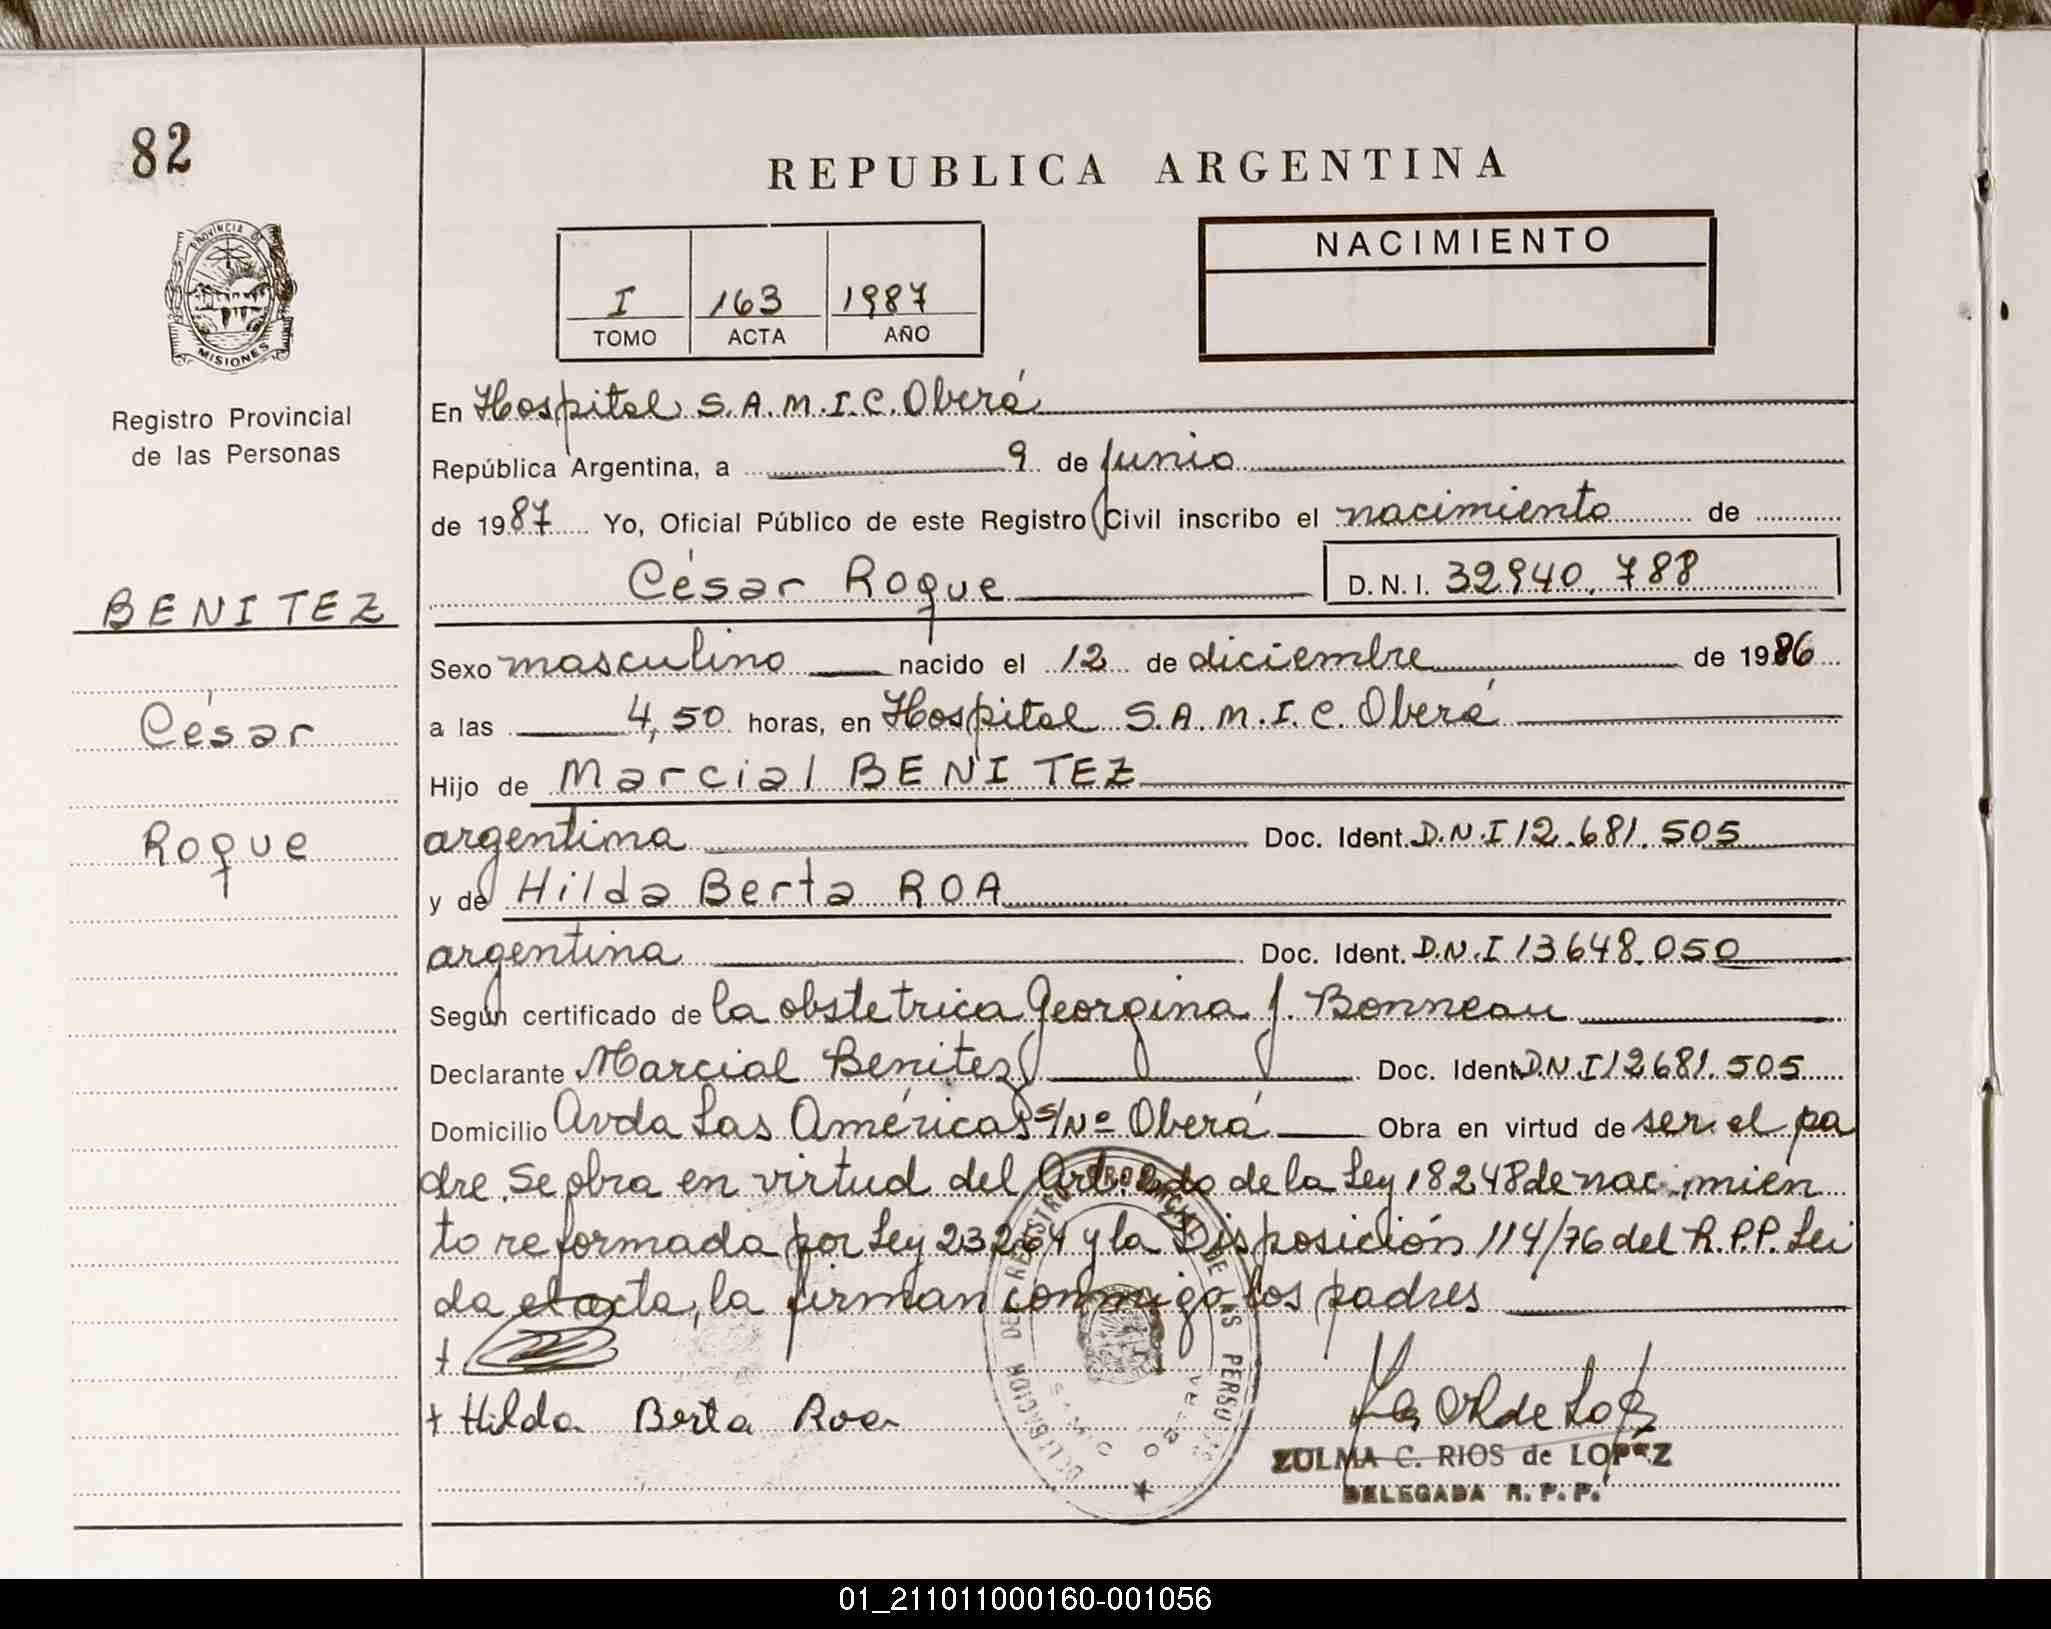 82
REPUBLICA ARGENTINA
PROVINCIA DE
MISIONES
Registro Provincial
de las Personas
BENITEZ
César
Roque
I 163 1987
TOMO ACTA AÑO
NACIMIENTO
En Hospital S.A.M.I.C. Oberá
República Argentina, a 9 de Junio
de 1987 Yo, Oficial Público de este Registro Civil inscribo el nacimiento de
César Roque D.N.I. 32940.788
Sexo masculino nacido el 12 de diciembre de 1986
a las 4,50 horas, en Hospital S.A.M.I.C. Oberá
Hijo de Marcial BENITEZ
argentina Doc. Ident. D.N.I 12.681.505
y de Hilda Berta ROA
argentina Doc. Ident. D.N.I 13648.050
Según certificado de la obstetrica Georgina J. Bonneau
Declarante Marcial Benitez Doc. Ident. D.N.I 12681.505
Domicilio Avda Las Américas s/Nº Oberá Obra en virtud de ser el pa
dre. Se obra en virtud del Art. 2do de la Ley 18248 de nacimien
to reformada por Ley 23264 y la Disposición 114/76 del R.P.P. Lei
da el acta, la firman conmigo los padres
+
+ Hilda Berta Roa
DELEGACION DEL REGISTRO PROVINCIAL DE LAS PERSONAS
ZULMA C. RIOS de LOPEZ
DELEGADA R.P.P.
01_211011000160-001056